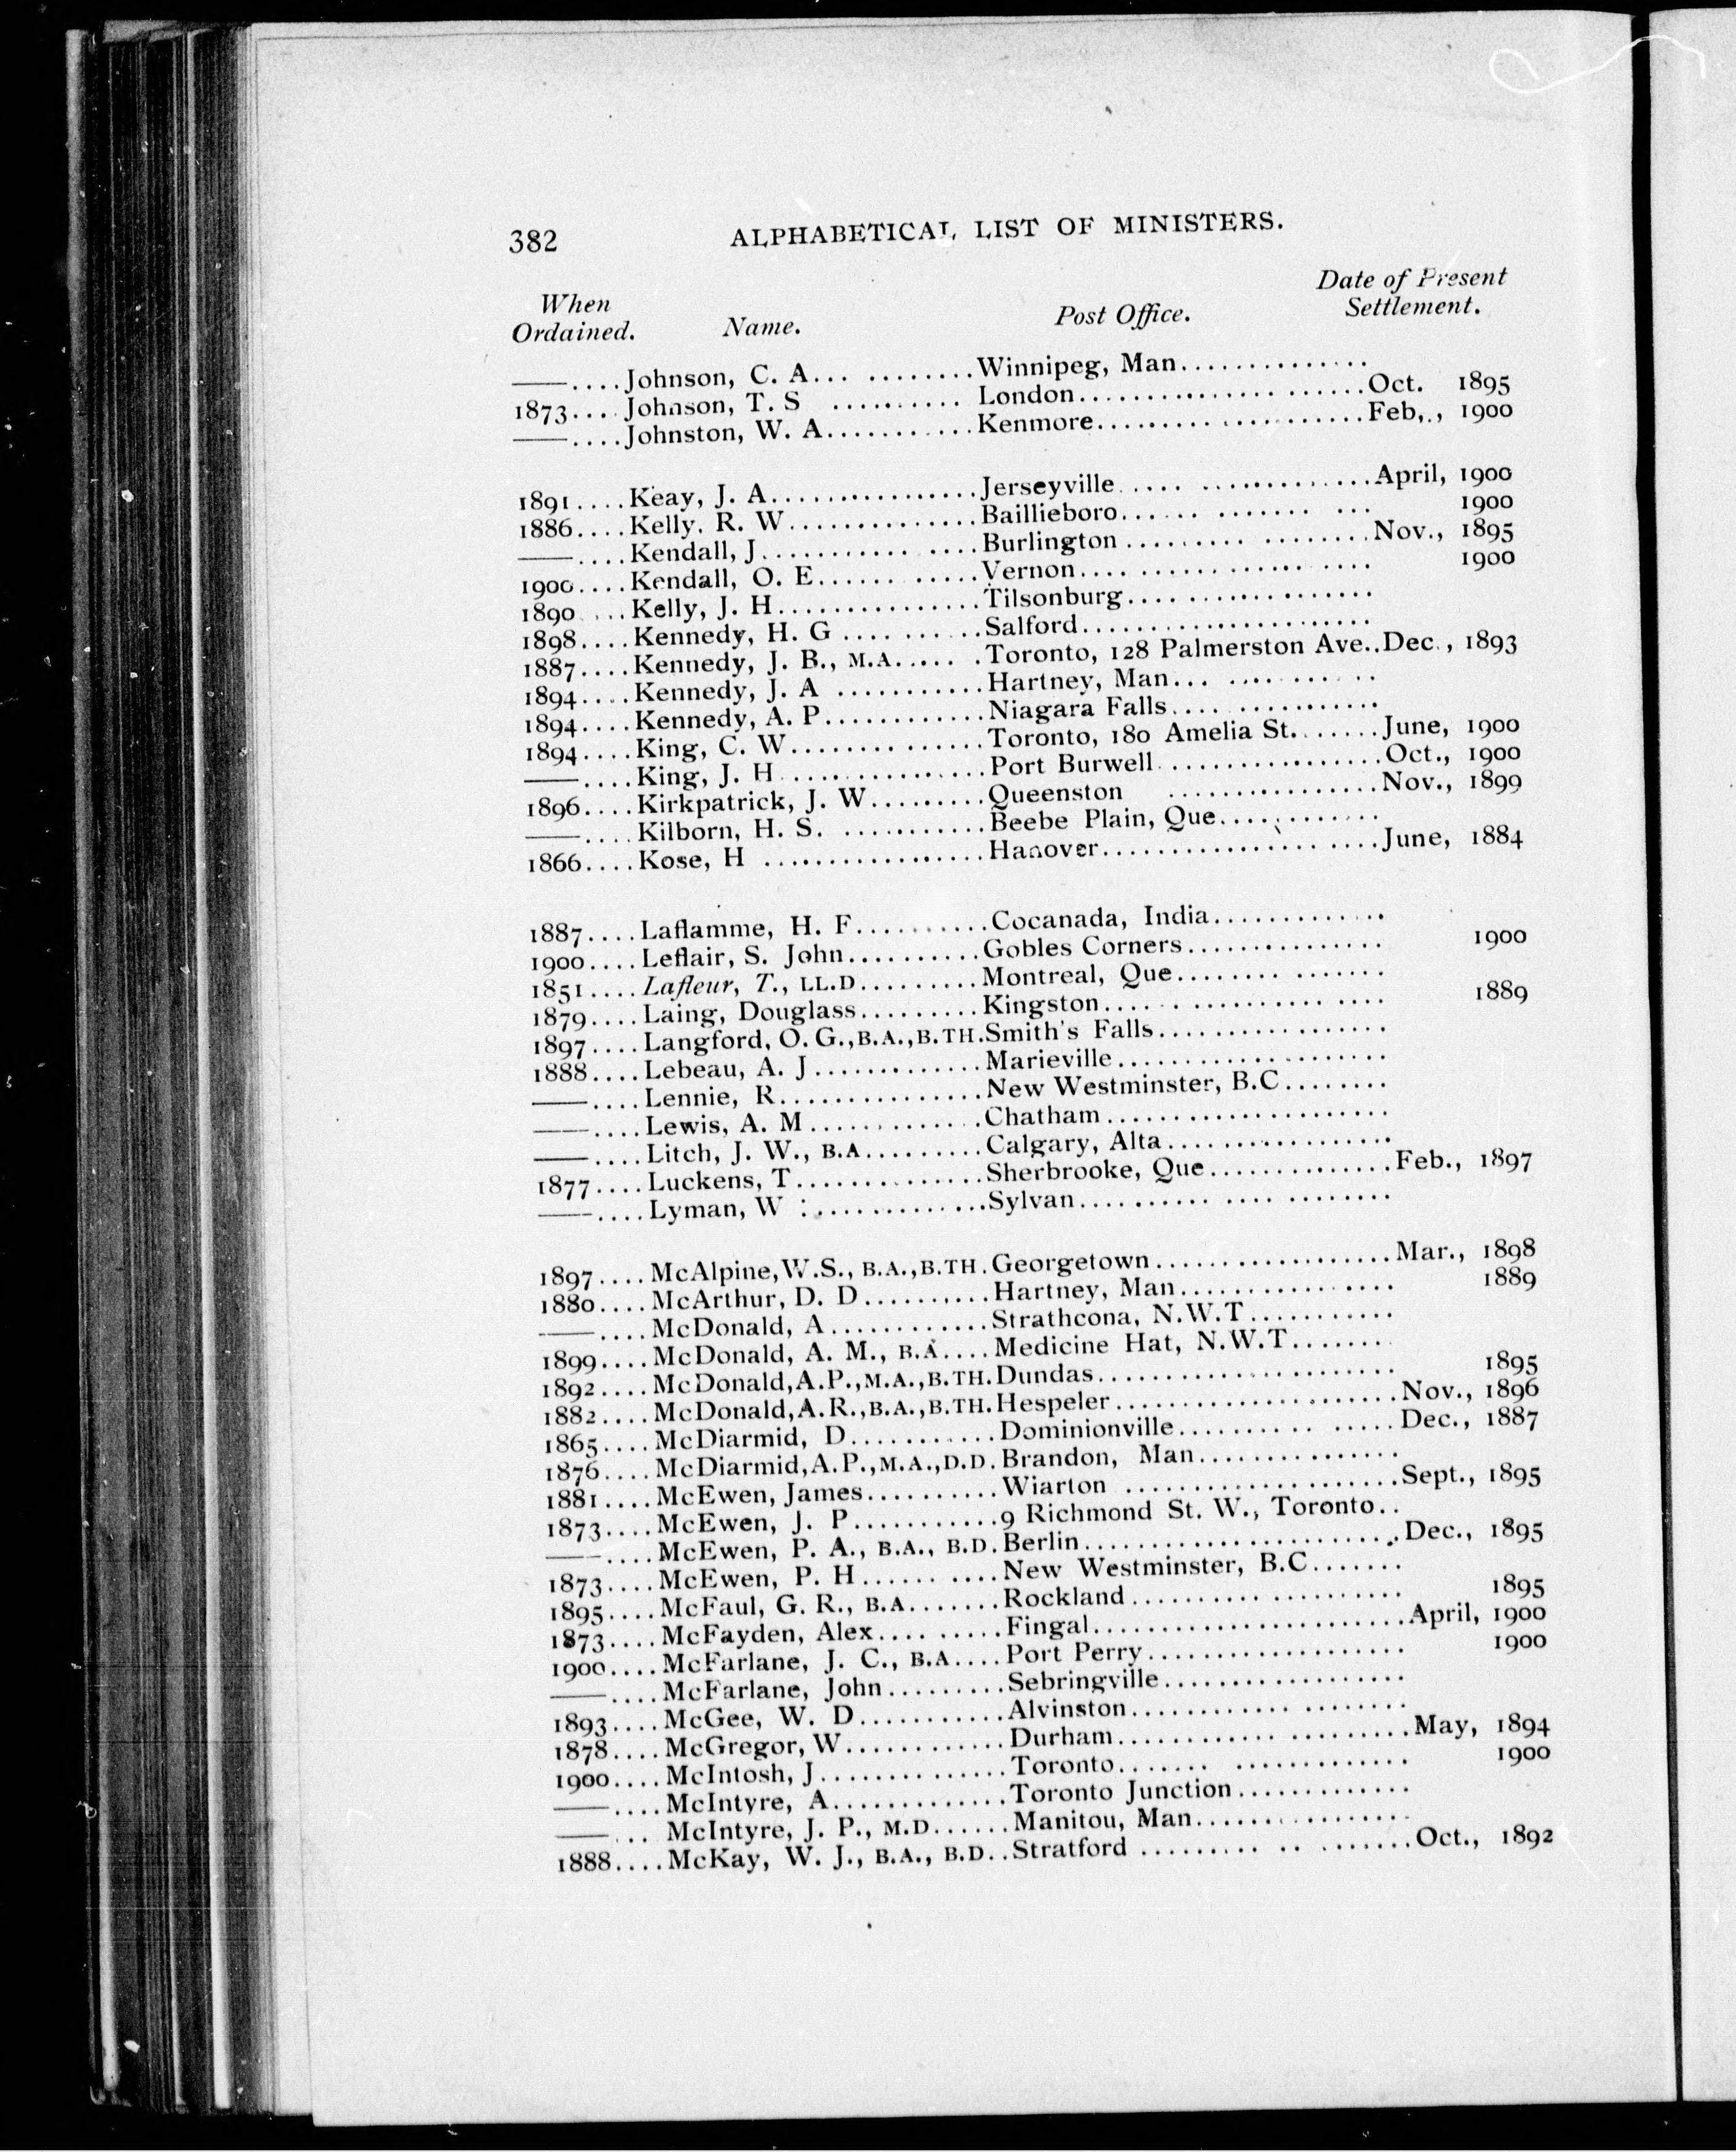 382 ALPHABETICAL LIST OF MINISTERS.
Date of Present
When
Settlement.
Ordained. Name. Post Office.
——....Johnson, C. A... ........Winnipeg, Man..............
1873....Johnson, T. S .......... London......................Oct. 1895
——....Johnston, W. A...........Kenmore....................Feb,., 1900
1891....Keay, J. A................Jerseyville..... .............April, 1900
1886....Kelly. R. W..............Baillieboro...... ....... ... 1900
——....Kendall, J............ ....Burlington ......... ........Nov., 1895
1900....Kendall, O. E...... .....Vernon.... ............ .... 1900
1890....Kelly, J. H...............Tilsonburg.... ..............
1898....Kennedy, H. G .... ......Salford......................
1887....Kennedy, J. B., M.A..... .Toronto, 128 Palmerston Ave..Dec., 1893
1894....Kennedy, J. A ...........Hartney, Man... ...........
1894....Kennedy, A. P............Niagara Falls.... ...........
1894....King, C. W...............Toronto, 180 Amelia St.......June, 1900
——....King, J. H................Port Burwell.................Oct., 1900
1896....Kirkpatrick, J. W.........Queenston ................Nov., 1899
——....Kilborn, H. S. ...........Beebe Plain, Que............
1866....Kose, H .................Hanover................. ....June, 1884
1887....Laflamme, H. F..........Cocanada, India.............
1900....Leflair, S. John..........Gobles Corners............... 1900
1851....Lafleur, T., LL.D.........Montreal, Que........ .......
1879....Laing, Douglass.........Kingston.... ............ .... 1889
1897....Langford, O. G.,B.A.,B.TH.Smith's Falls.................
1888....Lebeau, A. J.............Marieville.....................
——....Lennie, R................New Westminster, B.C........
——....Lewis, A. M.............Chatham......................
——....Litch, J. W., B.A.........Calgary, Alta.................
1877....Luckens, T..............Sherbrooke, Que..............Feb., 1897
——....Lyman, W :.............Sylvan........... .... ........
1897....McAlpine,W.S., B.A.,B.TH.Georgetown..................Mar., 1898
1880....McArthur, D. D..........Hartney, Man................ 1889
——....McDonald, A............Strathcona, N.W.T...........
1899....McDonald, A. M., B.A....Medicine Hat, N.W.T........
1892....McDonald,A.P.,M.A.,B.TH.Dundas....................... 1895
1882....McDonald,A.R.,B.A.,B.TH.Hespeler......................Nov., 1896
1865....McDiarmid, D...........Dominionville.......... .....Dec., 1887
1876....McDiarmid,A.P.,M.A.,D.D.Brandon, Man...............
1881....McEwen, James..........Wiarton .....................Sept., 1895
1873....McEwen, J. P...........9 Richmond St. W., Toronto..
——....McEwen, P. A., B.A., B.D.Berlin........................Dec., 1895
1873....McEwen, P. H...... ....New Westminster, B.C.......
1895....McFaul, G. R., B.A.......Rockland.......... .......... 1895
1873....McFayden, Alex.... .....Fingal........................April, 1900
1900....McFarlane, J. C., B.A....Port Perry.................... 1900
——....McFarlane, John.........Sebringville...................
1893....McGee, W. D...........Alvinston............ ........
1878....McGregor, W............Durham......................May, 1894
1900....McIntosh, J..............Toronto....... ............. 1900
——....McIntyre, A.............Toronto Junction.............
——... McIntyre, J. P., M.D......Manitou, Man................
1888....McKay, W. J., B.A., B.D..Stratford ......... .. .......Oct., 1892